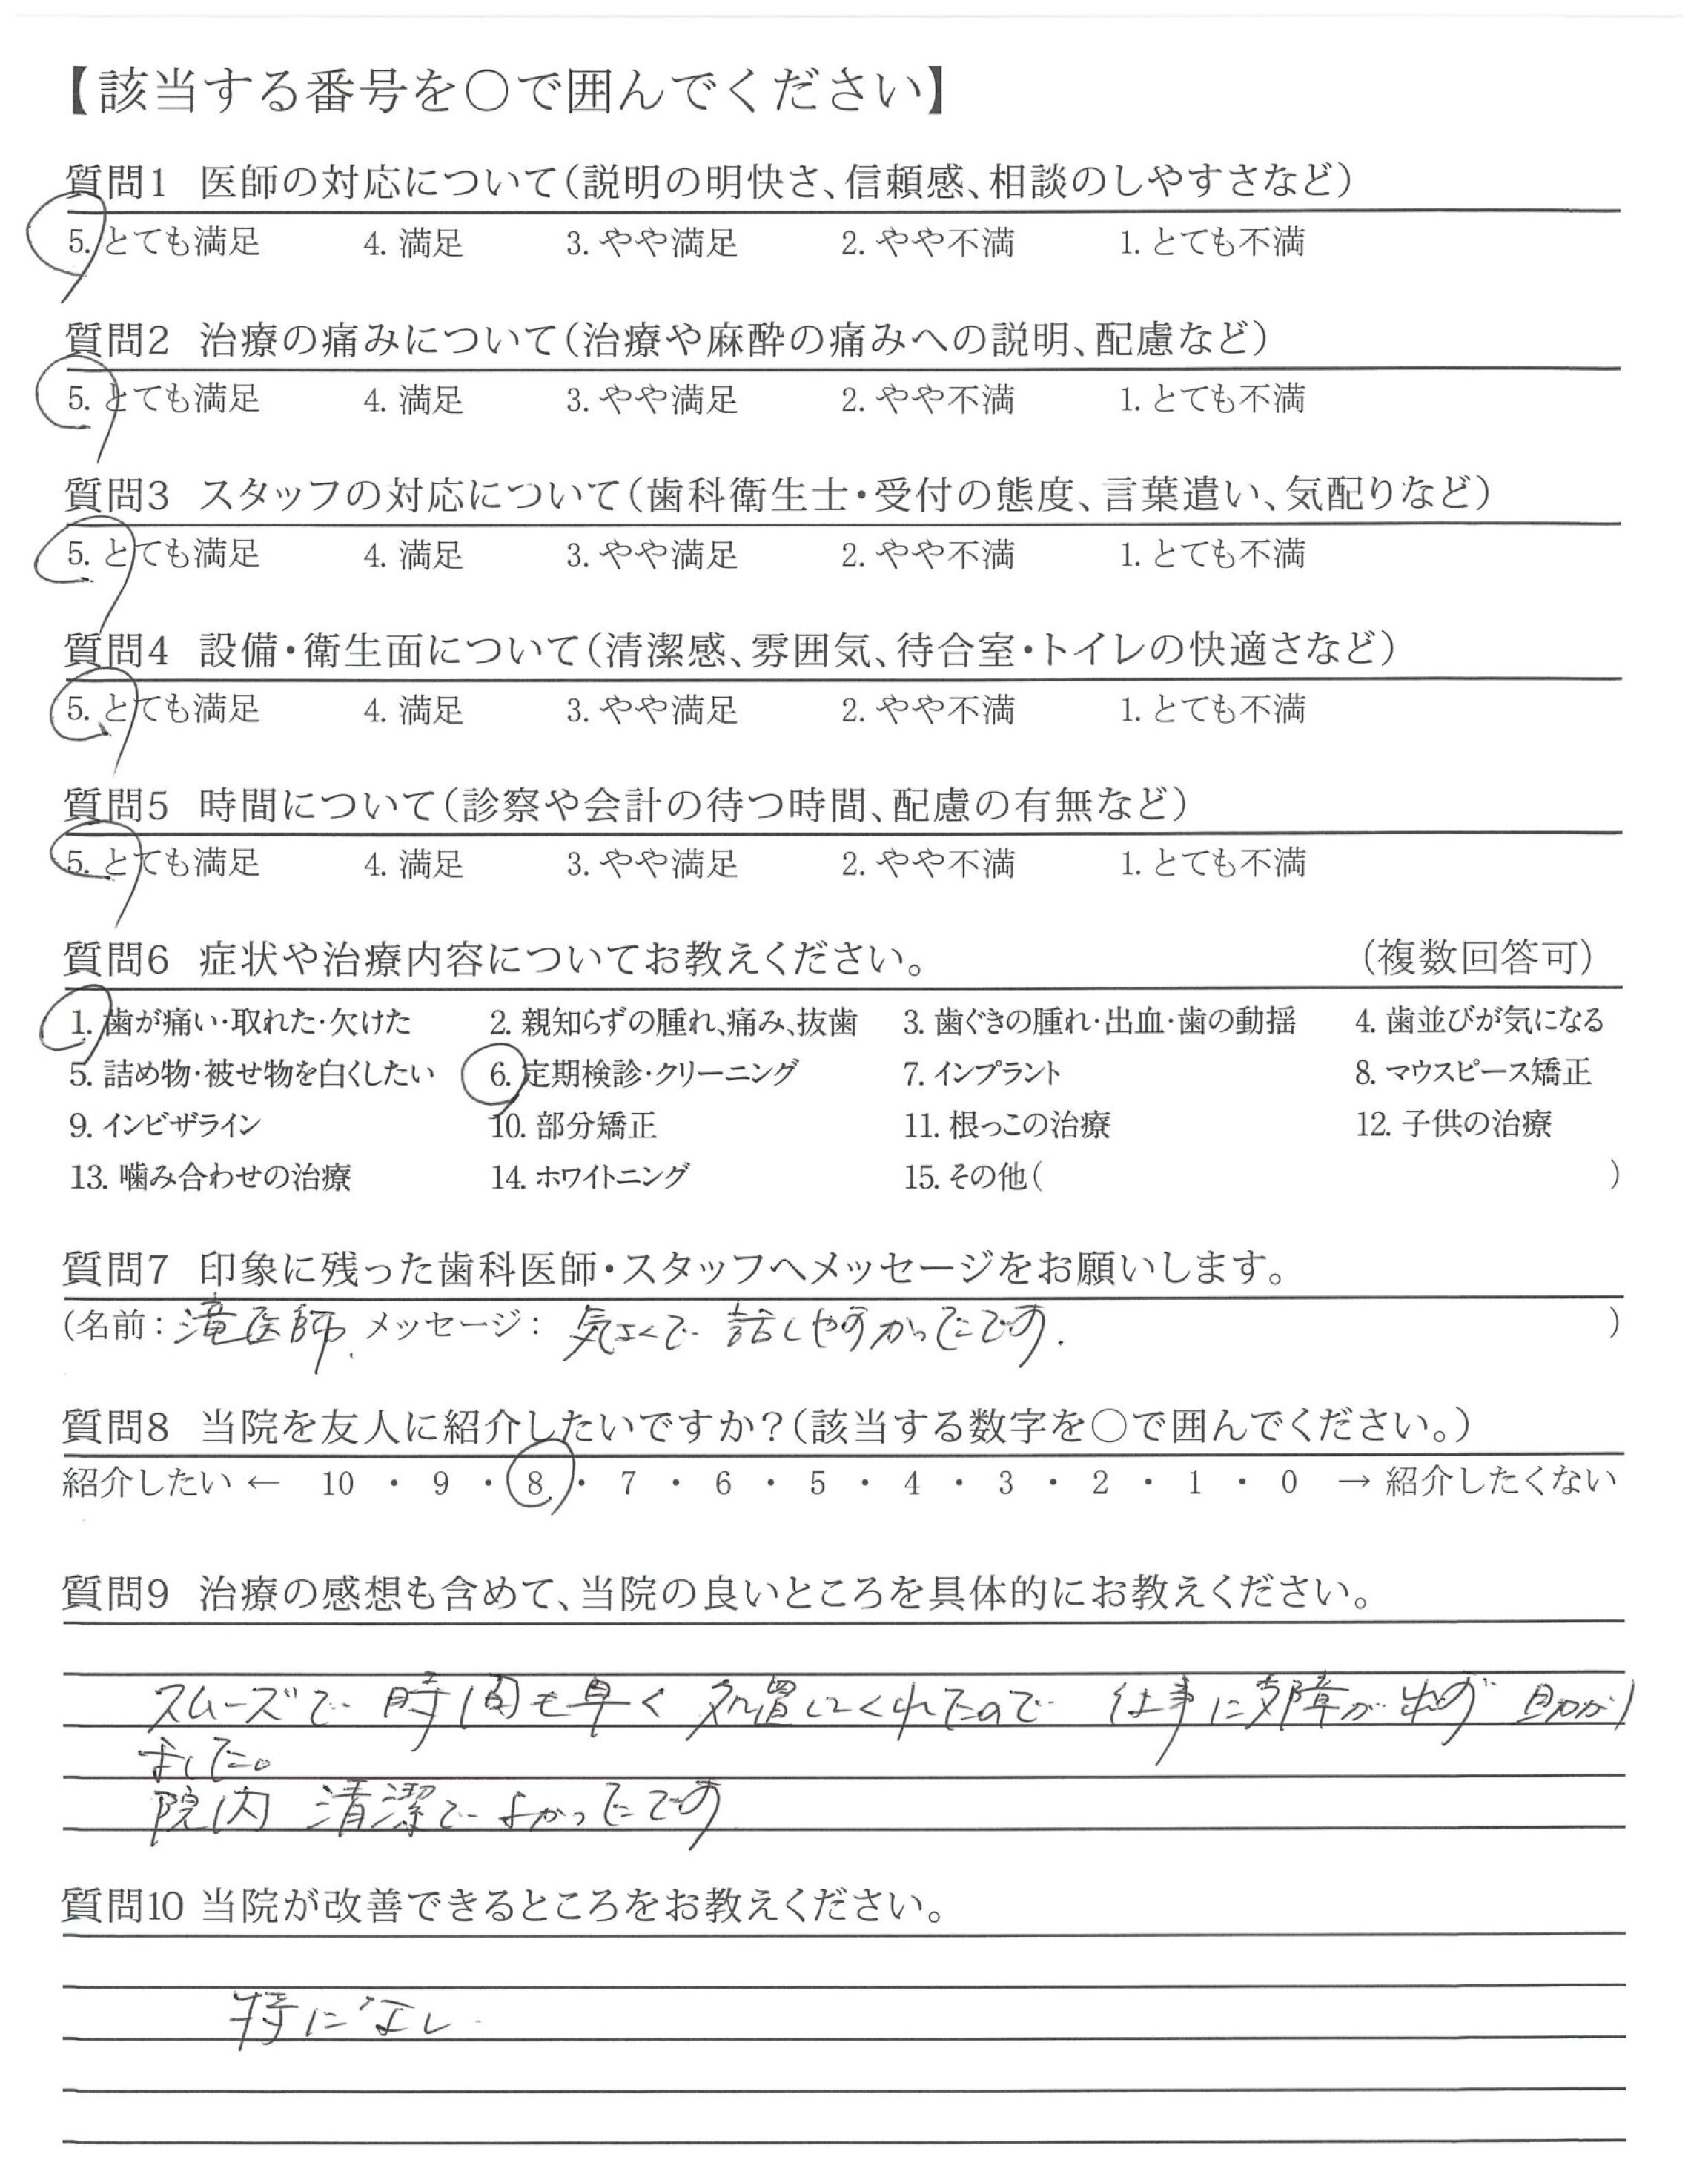 【該当する番号を〇で囲んでください】
質問1 医師の対応について(説明の明快さ、信頼感、相談のしやすさなど)
5. とても満足 4. 満足 3. やや満足 2. やや不満 1. とても不満
質問2 治療の痛みについて(治療や麻酔の痛みへの説明、配慮など)
5. とても満足 4. 満足 3. やや満足 2. やや不満 1. とても不満
質問3 スタッフの対応について(歯科衛生士・受付の態度、言葉遣い、気配りなど)
5. とても満足 4. 満足 3. やや満足 2. やや不満 1. とても不満
質問4 設備・衛生面について(清潔感、雰囲気、待合室・トイレの快適さなど)
5. とても満足 4. 満足 3. やや満足 2. やや不満 1. とても不満
質問5 時間について(診察や会計の待つ時間、配慮の有無など)
5. とても満足 4. 満足 3. やや満足 2. やや不満 1. とても不満
質問6 症状や治療内容についてお教えください。 (複数回答可)
1. 歯が痛い・取れた・欠けた 2. 親知らずの腫れ、痛み、抜歯 3. 歯ぐきの腫れ・出血・歯の動揺 4. 歯並びが気になる
5. 詰め物・被せ物を白くしたい 6. 定期検診・クリーニング 7. インプラント 8. マウスピース矯正
9. インビザライン 10. 部分矯正 11. 根っこの治療 12. 子供の治療
13. 噛み合わせの治療 14. ホワイトニング 15. その他( )
質問7 印象に残った歯科医師・スタッフへメッセージをお願いします。
(名前: 滝医師. メッセージ: 気さくで 話しやすかったです. )
質問8 当院を友人に紹介したいですか?(該当する数字を〇で囲んでください。)
紹介したい ← 10 ・ 9 ・ 8 ・ 7 ・ 6 ・ 5 ・ 4 ・ 3 ・ 2 ・ 1 ・ 0 → 紹介したくない
質問9 治療の感想も含めて、当院の良いところを具体的にお教えください。
スムーズで 時間も早く 処置してくれたので 仕事に支障が出ず 助かり
ました。
院内 清潔で よかったです
質問10 当院が改善できるところをお教えください。
特になし